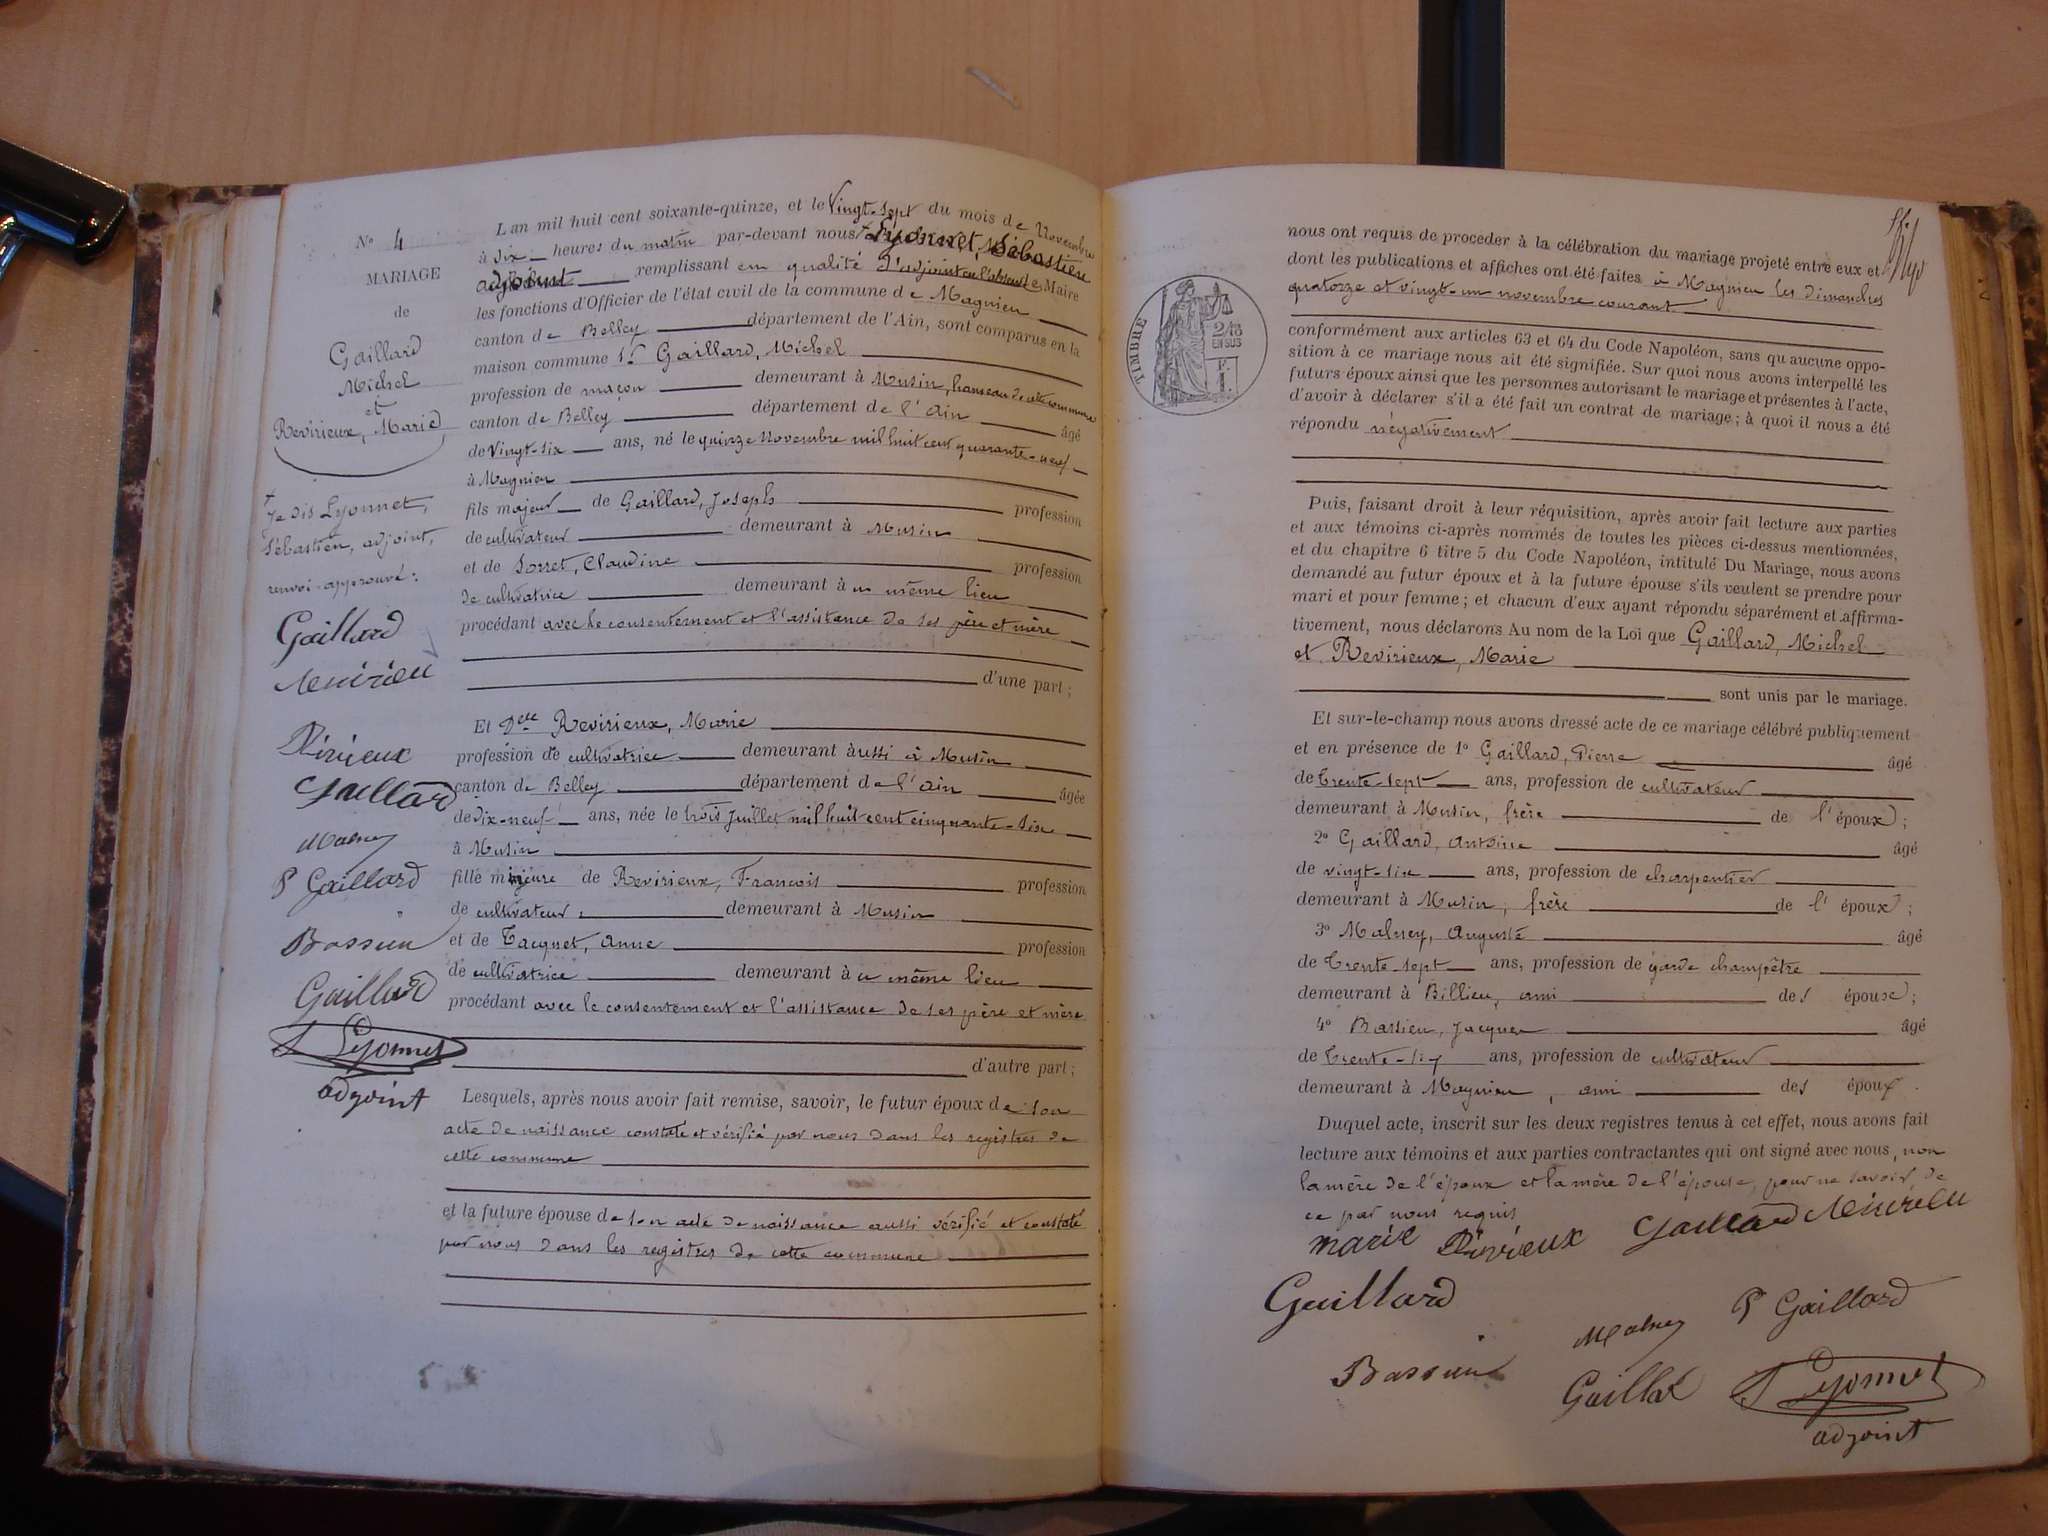 N° 4
MARIAGE
de
Gaillard
Michel
et
Revirieux, Marie
+
Je dis Lyonnet,
Sébastien, adjoint,
renvoi approuvé :
Gaillard
Révirieux
Gaillard
Malney
P Gaillard
Bassieu
Gaillard
S Lyonnet
adjoint
L an mil huit cent soixante-quinze, et le Vingt-sept du mois de Novembre
à dix heures du matin par-devant nous Lyonnet, Sébastien
adjoint remplissant en qualité d'adjoint en l'absence de Maire
les fonctions d'Officier de l'état civil de la commune de Magnieu
canton de Belley département de l'Ain, sont comparus en la
maison commune Sr Gaillard, Michel
profession de maçon demeurant à Musin, hameau de cette commune
canton de Belley département de l'Ain âgé
de Vingt-six ans, né le quinze Novembre mil huit cent quarante-neuf
à Magnieu
fils majeur de Gaillard, Joseph profession
de cultivateur demeurant à Musin
et de Sorret, Claudine profession
de cultivatrice demeurant à u même lieu
procédant avec le consentement et l'assistance de ses père et mère
d'une part ;
Et Delle Revirieux, Marie
profession de cultivatrice demeurant aussi à Musin
canton de Belley département de l'Ain âgée
de dix-neuf ans, née le trois Juillet mil huit cent cinquante-six
à Musin
fille mineure de Revirieux, François profession
de cultivateur demeurant à Musin
et de Tacquet, Anne profession
de cultivatrice demeurant à u même lieu
procédant avec le consentement et l'assistance de ses père et mère
d'autre part ;
Lesquels, après nous avoir fait remise, savoir, le futur époux de son
acte de naissance constaté et vérifié par nous dans les registres de
cette commune
et la future épouse de son acte de naissance aussi vérifié et constaté
par nous dans les registres de cette commune
TIMBRE
2/10
EN SUS
nous ont requis de procéder à la célébration du mariage projeté entre eux et
dont les publications et affiches ont été faites à Magnieu les dimanches
quatorze et vingt-un novembre courant
conformément aux articles 63 et 64 du Code Napoléon, sans qu aucune oppo-
sition à ce mariage nous ait été signifiée. Sur quoi nous avons interpellé les
futurs époux ainsi que les personnes autorisant le mariage et présentes à l'acte,
d'avoir à déclarer s'il a été fait un contrat de mariage ; à quoi il nous a été
répondu négativement
Puis, faisant droit à leur réquisition, après avoir fait lecture aux parties
et aux témoins ci-après nommés de toutes les pièces ci-dessus mentionnées,
et du chapitre 6 titre 5 du Code Napoléon, intitulé Du Mariage, nous avons
demandé au futur époux et à la future épouse s'ils veulent se prendre pour
mari et pour femme ; et chacun d'eux ayant répondu séparément et affirma-
tivement, nous déclarons Au nom de la Loi que Gaillard, Michel
et Revirieux, Marie
sont unis par le mariage.
Et sur-le-champ nous avons dressé acte de ce mariage célébré publiquement
et en présence de 1° Gaillard, Pierre âgé
de trente-sept ans, profession de cultivateur
demeurant à Musin, frère de l'époux ;
2° Gaillard, Antoine âgé
de vingt-six ans, profession de charpentier
demeurant à Musin, frère de l'époux ;
3° Malney, Auguste âgé
de trente-sept ans, profession de garde champêtre
demeurant à Billieu, ami des époux ;
4° Bassieu, Jacques âgé
de trente-six ans, profession de cultivateur
demeurant à Magnieu, ami des époux.
Duquel acte, inscrit sur les deux registres tenus à cet effet, nous avons fait
lecture aux témoins et aux parties contractantes qui ont signé avec nous, non
la mère de l'époux et la mère de l'épouse, pour ne savoir, de
ce par nous requis
marie Révirieux Gaillard
Gaillard
Malney P Gaillard
Bassieu Gaillard S Lyonnet
adjoint